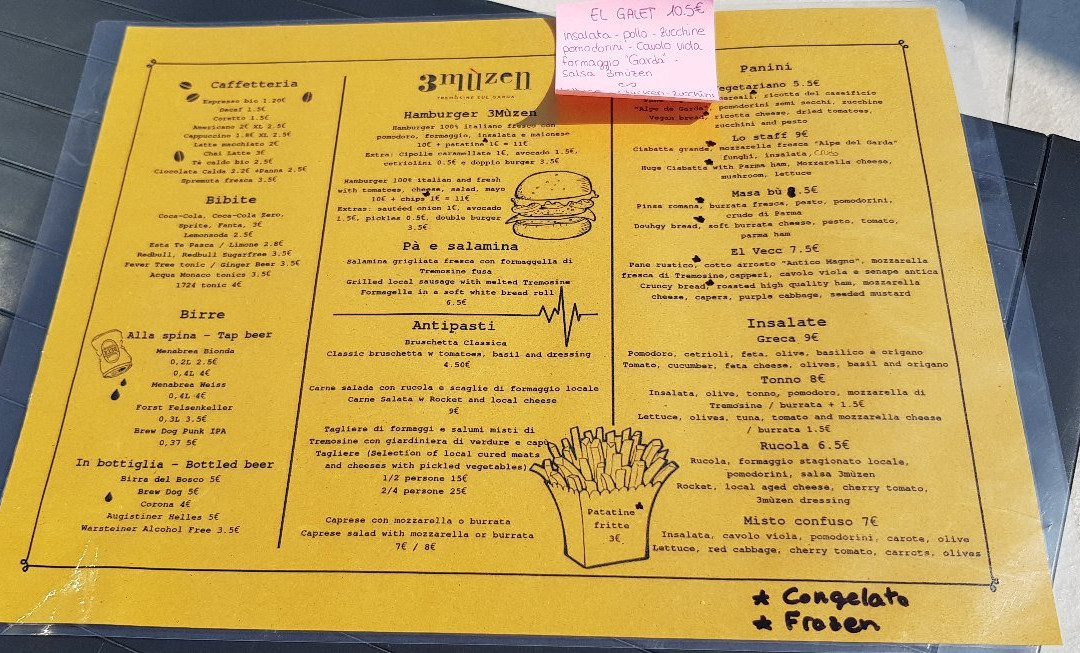 EL GALET 10.5€
insalata - pollo - zucchine
pomodorini - cavolo viola
formaggio "Garda" -
salsa 3mùzen
Caffetteria
Espresso bio 1.20€
Decaf 1.5€
Coretto 1.5€
Americano 2€ XL 2.5€
Cappuccino 1.8€ XL 2.5€
Latte macchiato 2€
Chai Latte 3€
Tè caldo bio 2.5€
Cioccolata Calda 2.2€ +Panna 2.5€
Spremuta fresca 3.5€
Bibite
Coca-Cola, Coca-Cola Zero,
Sprite, Fanta, 3€
Lemonsoda 2.5€
Esta Te Pesca / Limone 2.8€
Redbull, Redbull Sugarfree 3.5€
Fever Tree tonic / Ginger Beer 3.5€
Acqua Monaco tonics 3.5€
1724 tonic 4€
Birre
Alla spina - Tap beer
Menabrea Bionda
0,2L 2.5€
0,4L 4€
Menabrea Weiss
0,4L 4€
Forst Felsenkeller
0,3L 3.5€
Brew Dog Punk IPA
0,37 5€
In bottiglia - Bottled beer
Birra del Bosco 5€
Brew Dog 5€
Corona 4€
Augistiner Helles 5€
Warsteiner Alcohol Free 3.5€
3mùzen
TREMOSINE SUL GARDA
Hamburger 3Mùzen
Hamburger 100% italiano fresco con
pomodoro, formaggio, insalata e maionese
10€ + patatine 1€ = 11€
Extra: Cipolle caramellate 1€, avocado 1.5€,
cetriolini 0.5€ e doppio burger 3.5€
Hamburger 100% italian and fresh
with tomatoes, cheese, salad, mayo
10€ + chips 1€ = 11€
Extras: sautéed onion 1€, avocado
1.5€, pickles 0.5€, double burger
3.5€
Pà e salamina
Salamina grigliata fresca con formaggella di
Tremosine fusa
Grilled local sausage with melted Tremosine
Formagella in a soft white bread roll
6.5€
Antipasti
Bruschetta Classica
Classic bruschetta w tomatoes, basil and dressing
4.50€
Carne salada con rucola e scaglie di formaggio locale
Carne Salata w Rocket and local cheese
9€
Tagliere di formaggi e salumi misti di
Tremosine con giardiniera di verdure e
Tagliere (Selection of local cured meats
and cheeses with pickled vegetables)
1/2 persone 15€
2/4 persone 25€
Caprese con mozzarella o burrata
Caprese salad with mozzarella or burrata
7€ / 8€
Patatine
fritte
3€
Panini
egetariano 5.5€
ricotta del caseificio
"Alpe de Garda", pomodorini semi secchi, zucchine
Vegan bread, ricotta cheese, dried tomatoes,
zucchini and pesto
Lo staff 9€
Ciabatta grande, mozzarella fresca "Alpe del Garda"
funghi, insalata, crudo
Huge Ciabatta with Parma ham, Mozzarella cheese,
mushroom, lettuce
Masa bù 8.5€
Pinsa romana, burrata fresca, pesto, pomodorini,
crudo di Parma
Douhgy bread, soft burrata cheese, pesto, tomato,
parma ham
El Vecc 7.5€
Pane rustico, cotto arrosto "Antico Magno", mozzarella
fresca di Tremosine, capperi, cavolo viola e senape antica
Cruncy bread, roasted high quality ham, mozzarella
cheese, capers, purple cabbage, seeded mustard
Insalate
Greca 9€
Pomodoro, cetrioli, feta, olive, basilico e origano
Tomato, cucumber, feta cheese, olives, basil and origano
Tonno 8€
Insalata, olive, tonno, pomodoro, mozzarella di
Tremosine / burrata + 1.5€
Lettuce, olives, tuna, tomato and mozzarella cheese
/ burrata 1.5€
Rucola 6.5€
Rucola, formaggio stagionato locale,
pomodorini, salsa 3mùzen
Rocket, local aged cheese, cherry tomato,
3mùzen dressing
Misto confuso 7€
Insalata, cavolo viola, pomodorini, carote, olive
Lettuce, red cabbage, cherry tomato, carrots, olives
★ Congelato
★ Frosen